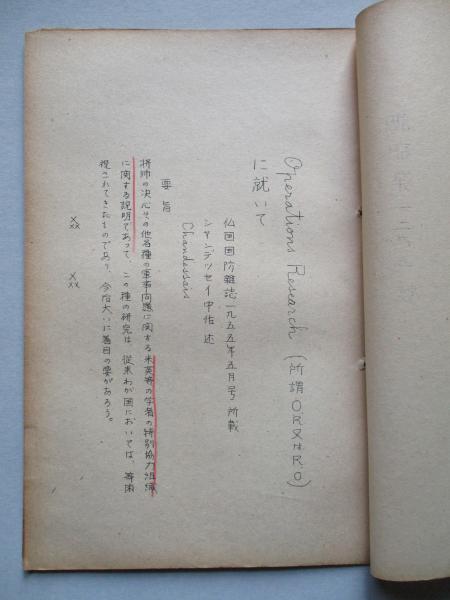 Operations Research (所謂O.R又はR.O)
に就いて
仏国国防雑誌一九五五年五月号所載
シャンデッセイ中佐 述
Chandessais
要旨
将帥の決心その他各種の軍事問題に関する米英等の学者の特別協力組織
に関する説明であって、この種の研究は、従来わが国においては、等閑
視されてきたものであり、今后大いに着目の要があろう。